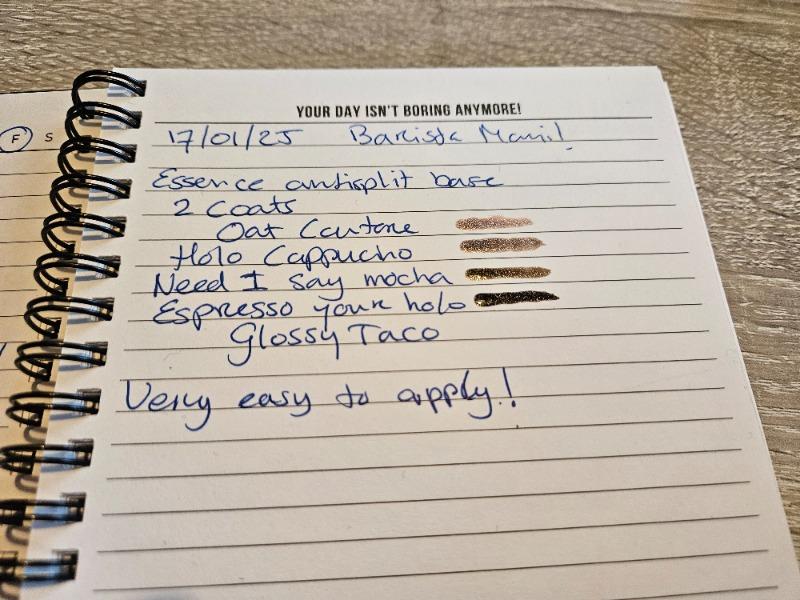 F S
YOUR DAY ISN'T BORING ANYMORE!
17/01/25 Barista Mani!
Essence antisplit base
2 Coats
Oat Couture
Holo Cappucho
Need I say mocha
Espresso your holo
Glossy Taco
Very easy to apply!